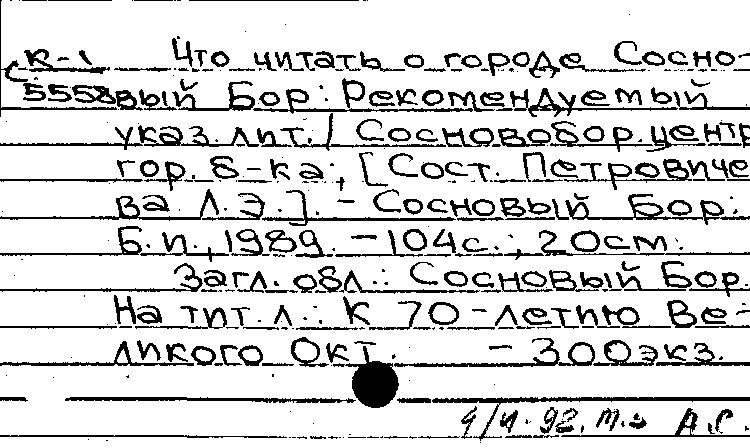 К-1 Что читать о городе Сосно-
С 5558 вый Бор: Рекомендуемый
указ. лит. / Сосновобор. центр
гор. б-ка; [Сост. Петровиче
ва Л.Э.]. - Сосновый Бор:
Б.и., 1989. - 104с.; 20см.
Загл. обл.: Сосновый Бор.
На тит. л.: К 70-летию Ве-
ликого Окт. - 300экз.
92. А.С.